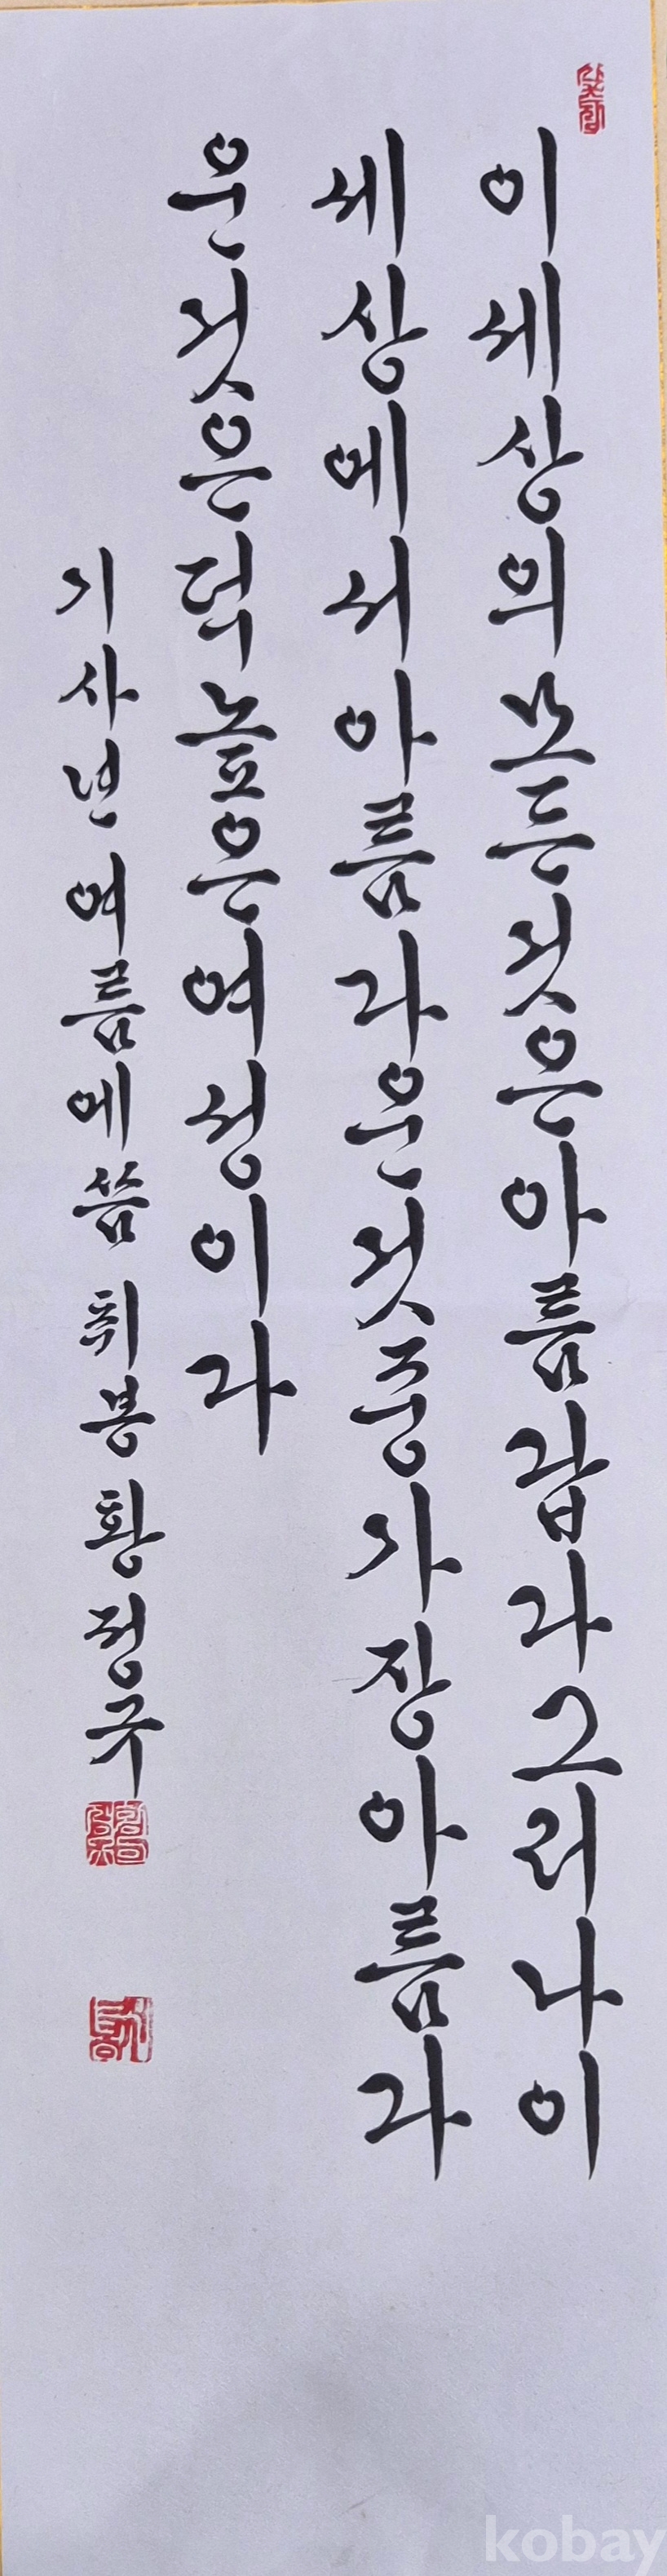 이세상의모든것은아름답다그러나이
세상에서아름다운것중가장아름다
운것은덕높은여성이라
기사년 여름에씀 취봉 황정구
kobay